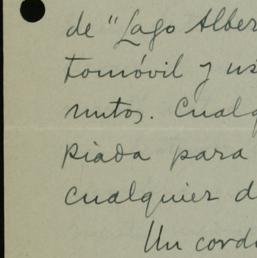 de "Lago Alber
tomóvil y us
nutos. Cualq
piada para
cualquier d
Un cordi